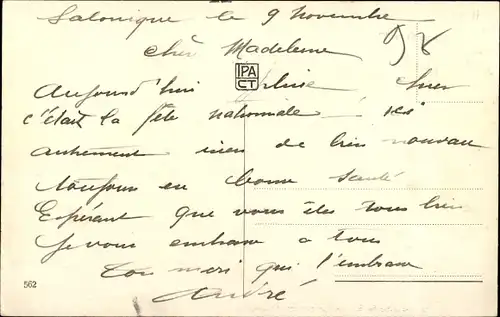 Salonique le 9 Novembre
Chère Madeleine
IPA
CT
Aujourd'hui pluie hier
c'était la fête nationale ici
autrement rien de bien nouveau
toujours en bonne santé
Espérant que vous êtes tous bien
Je vous embrasse a tous
Ton mari qui t'embrasse
André
562